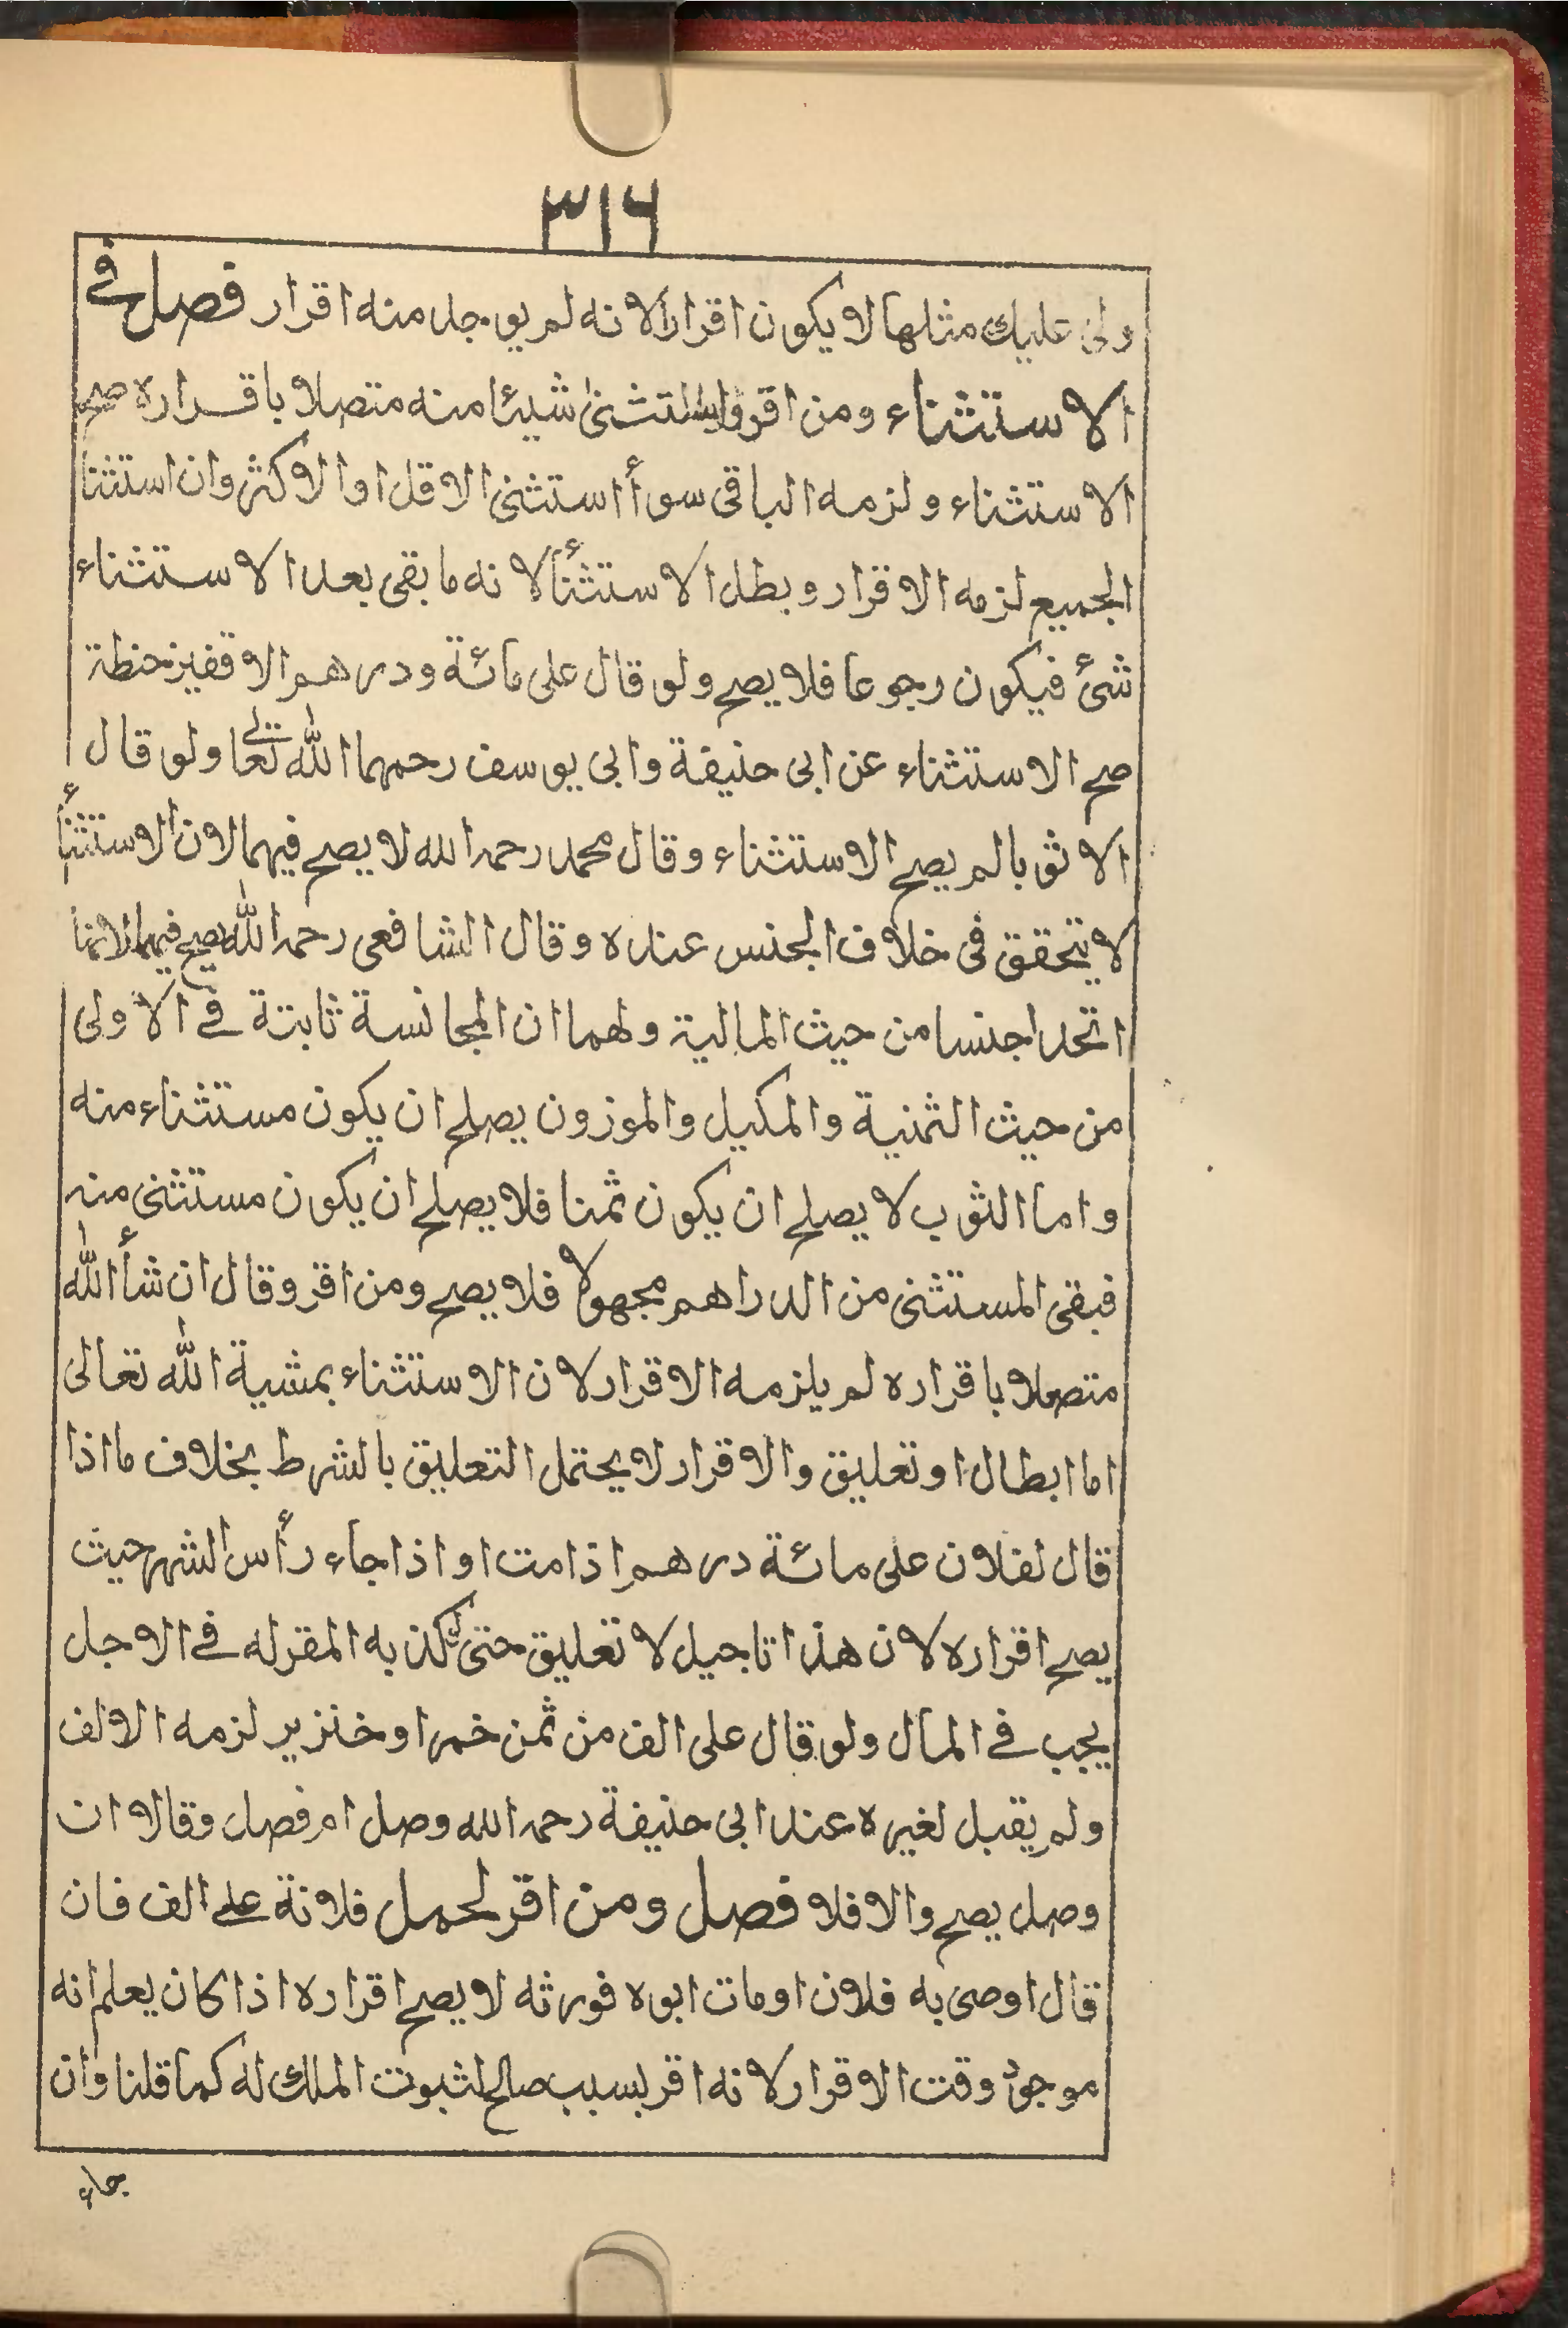 ٣١٦
ولى عليك مثلها لا يكون اقرارا لانه لم يوجد منه اقرار فصل في
الاستثناء ومن اقر واستثنىٰ شيئا منه متصلا باقراره صح
الاستثناء ولزمه الباقى سوأ استثنى الاقل او الاكثر وان استثنا
الجميع لزمه الاقرار وبطل الاستثنأ لانه ما بقى بعد الاستثناء
شئ فيكون رجوعا فلا يصح ولو قال على مائة ودرهم الا قفيز حنطة
صح الاستثناء عن ابى حنيفة وابى يوسف رحمهما الله تعالى ولو قال
الا ثوبا لم يصح الاستثناء وقال محمد رحمه الله لا يصح فيهما لان الاستثنأ
لا يتحقق فى خلاف الجنس عنده وقال الشافعى رحمه الله يصح فيهما لانهما
اتحدا جنسا من حيث المالية ولهما ان المجانسة ثابتة في الاولى
من حيث الثمنية والمكيل والموزون يصلح ان يكون مستثناء منه
واما الثوب لا يصلح ان يكون ثمنا فلا يصلح ان يكون مستثنى منه
فبقى المستثنى من الدراهم مجهولا فلا يصح ومن اقر وقال ان شأ الله
متصلا باقراره لم يلزمه الاقرار لان الاستثناء بمشية الله تعالى
اما ابطال او تعليق والاقرار لا يحتمل التعليق بالشرط بخلاف ما اذا
قال لفلان على مائة درهم اذا مت او اذا جاء رأس الشهر حيث
يصح اقراره لان هذا تاجيل لا تعليق حتى لو كذبه المقرله في الاجل
يجب في المال ولو قال على الف من ثمن خمر او خنزير لزمه الالف
ولم يقبل لغيره عند ابى حنيفة رحمه الله وصل ام فصل وقالا ان
وصل يصح والا فلا فصل ومن اقر لحمل فلانة علے الف فان
قال اوصى به فلان او مات ابوه فورثه لا يصح اقراره اذا كان يعلم انه
موجود وقت الاقرار لانه اقر بسبب صالح لثبوت الملك له كما قلنا وان
جاء